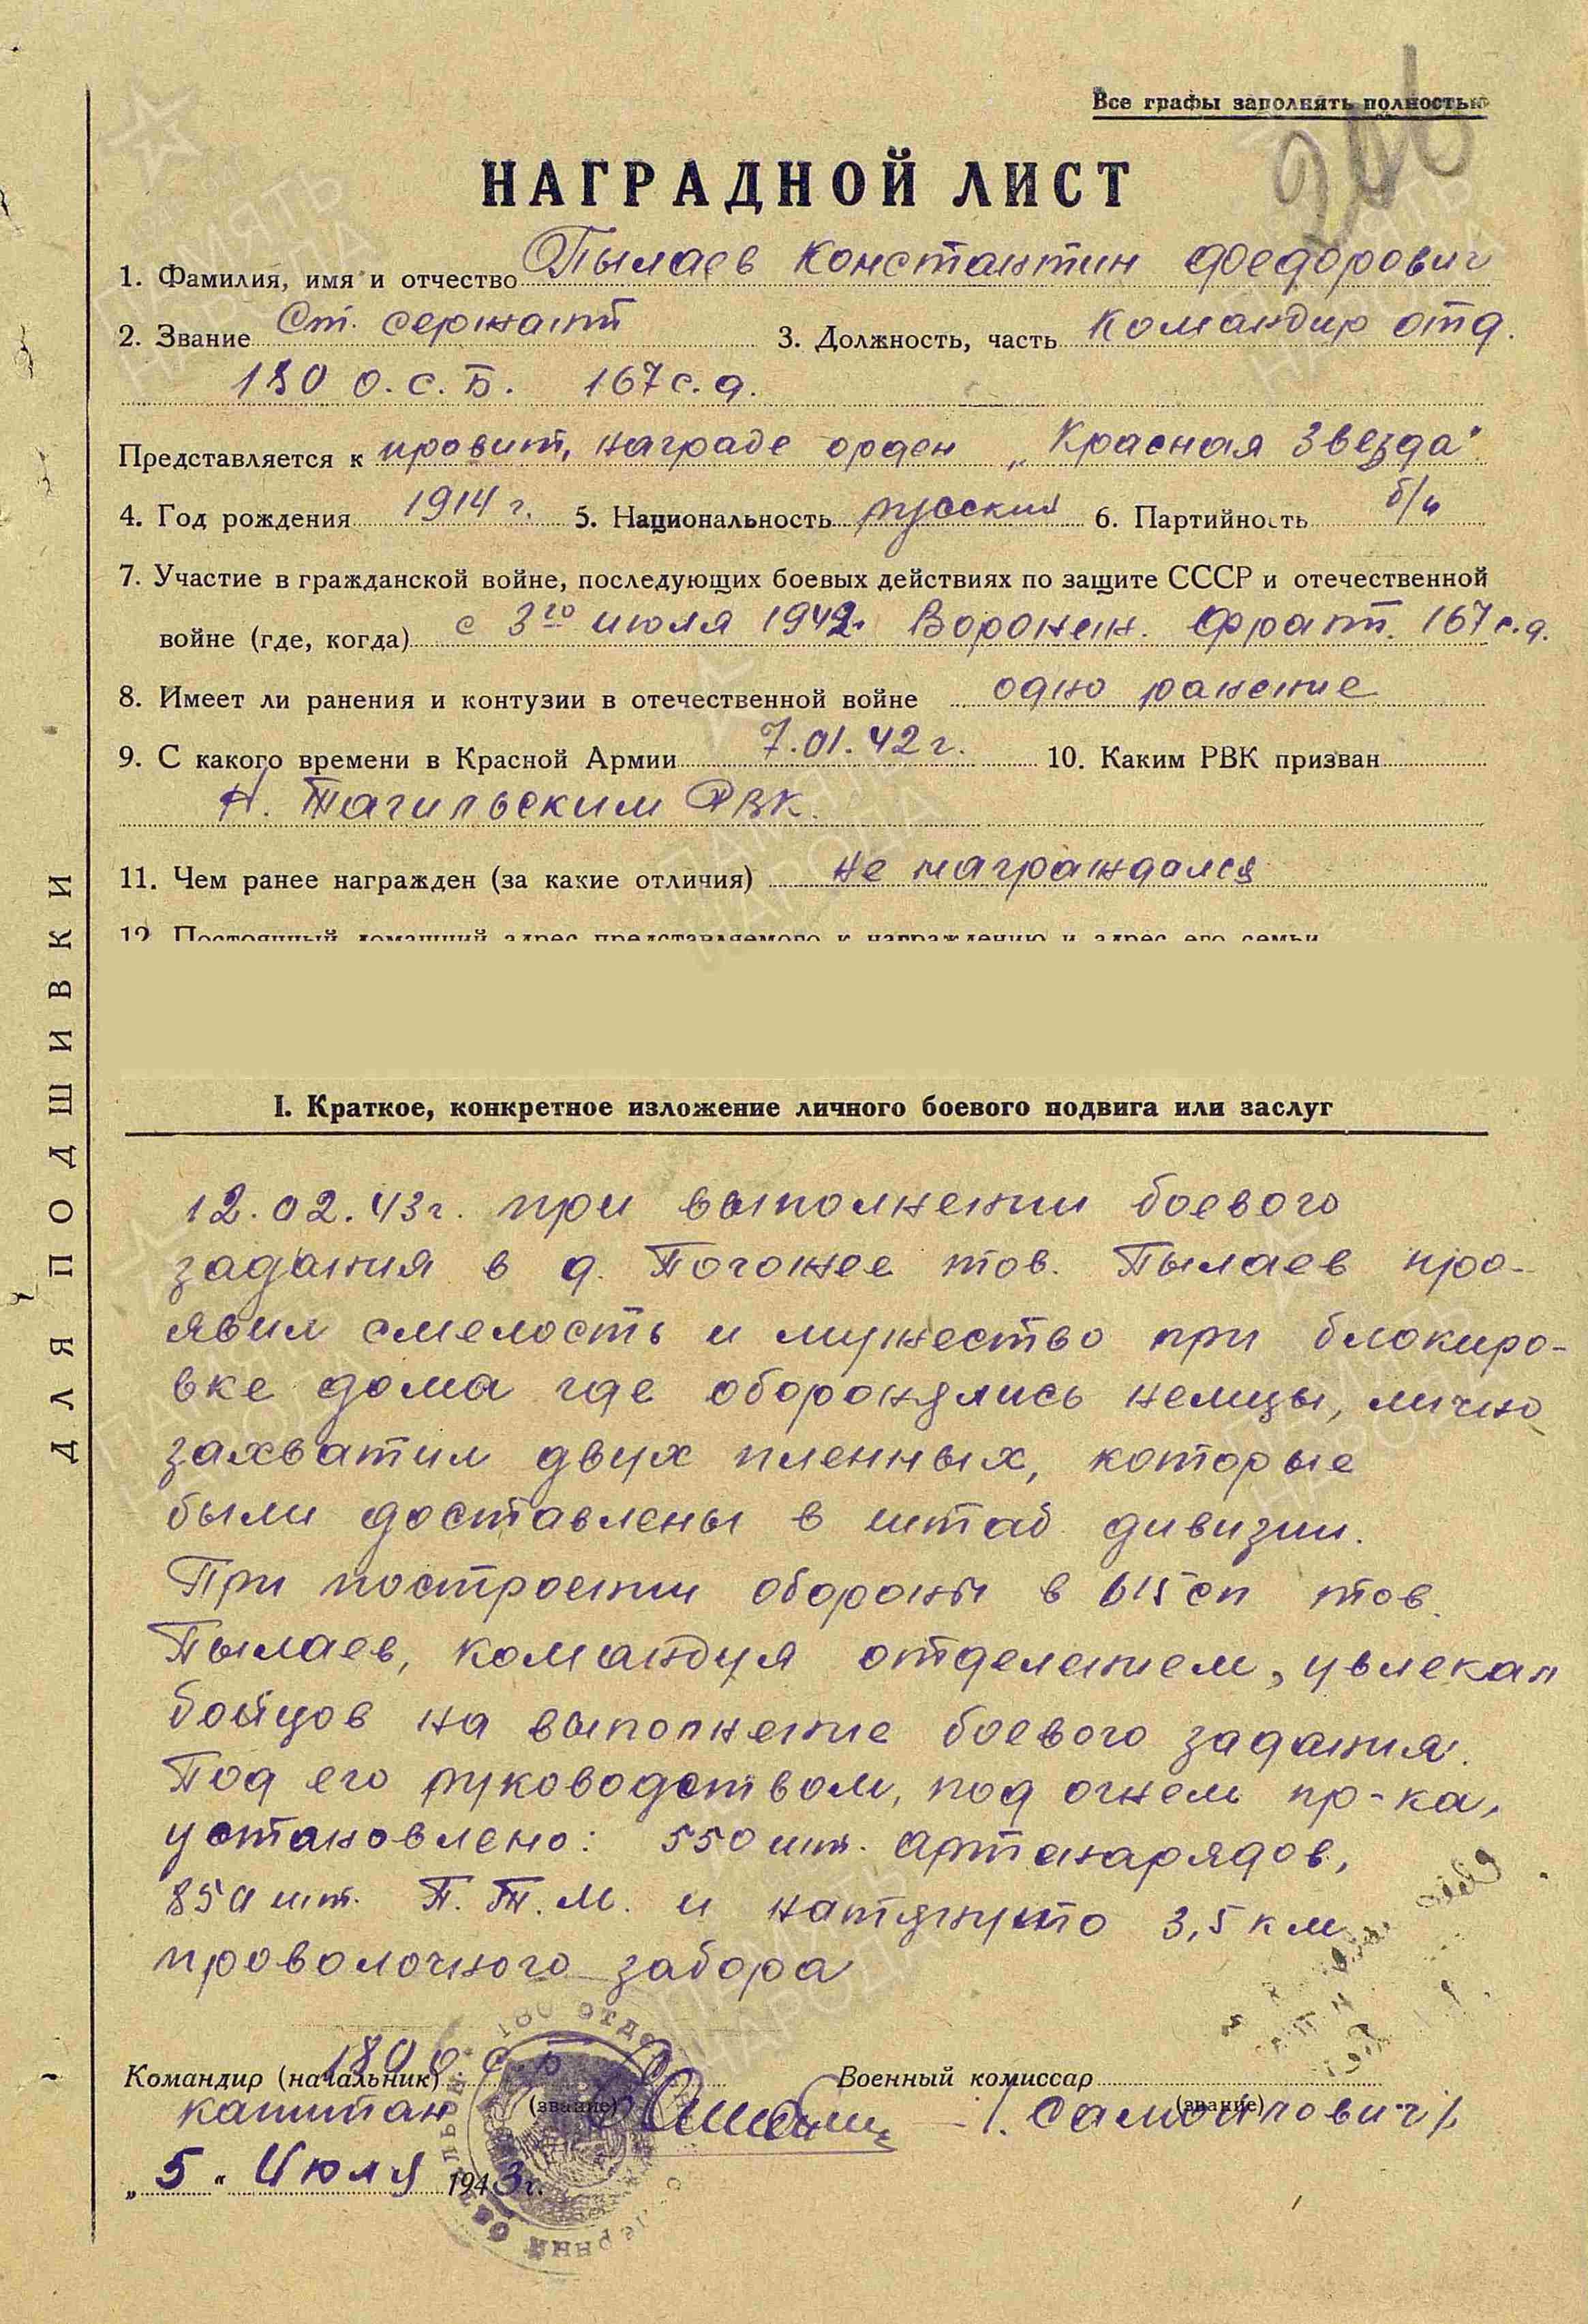 Все графы заполнять полностью
206
НАГРАДНОЙ ЛИСТ
1. Фамилия, имя и отчество Пылаев Константин Федорович
2. Звание Ст. сержант 3. Должность, часть Командир отд.
180 о.с.б. 167 с.д.
Представляется к правит. награде орден „Красная Звезда"
4. Год рождения 1914 г. 5. Национальность русский 6. Партийность б/п
7. Участие в гражданской войне, последующих боевых действиях по защите СССР и отечественной
войне (где, когда) с 3го июля 1942г. Воронеж. Фронт. 167 с.д.
8. Имеет ли ранения и контузии в отечественной войне одно ранение
9. С какого времени в Красной Армии 7.01.42 г. 10. Каким РВК призван
Н. Тагильским РВК.
11. Чем ранее награжден (за какие отличия) не награждался
12. Постоянный домашний адрес представляемого к награждению и адрес его семьи
I. Краткое, конкретное изложение личного боевого подвига или заслуг
12.02.43г. при выполнении боевого
задания в д. Погожее тов. Пылаев про-
явил смелость и мужество при блокиро-
вке дома где оборонялись немцы, лично
захватил двух пленных, которые
были доставлены в штаб дивизии.
При построении обороны в 615 сп тов.
Пылаев, командуя отделением, увлекал
бойцов на выполнение боевого задания.
Под его руководством, под огнем пр-ка,
установлено: 550 шт. артснарядов,
850 шт. П.Т.М. и натянуто 3,5 км
проволочного забора
Командир (начальник) 180 о.с.б. Военный комиссар
капитан (звание) /Самойлович/ (звание)
„5" Июля 1943г.
ДЛЯ ПОДШИВКИ
180 отде
ПАМЯТЬ НАРОДА